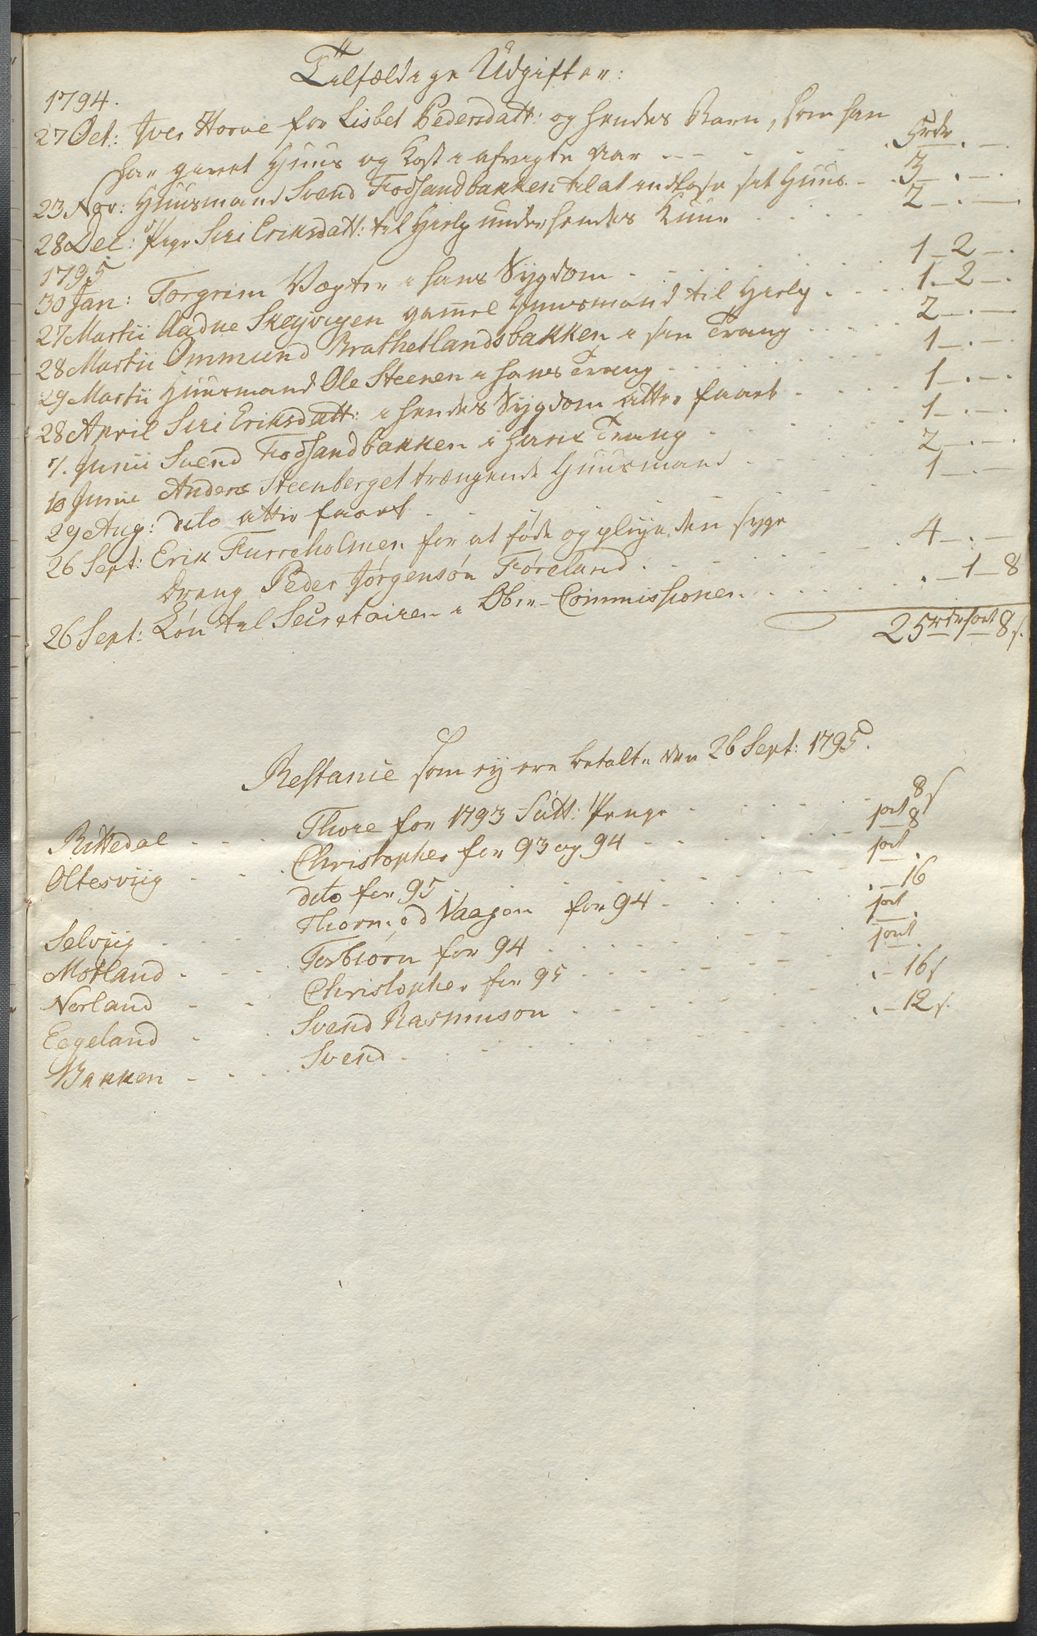 Tilfældige Udgifter:
1794.
27 Oct: Iver Horve for Lisbet Pedersdatt: og hendes Barn, som han
har givet Huus og Kost i afvigte Aar - - - 5 rdr . -
23 Nov: Huusmand Svend Fodsandbakken til at indkiøbe sit Huus - 3 - . -
28 Dec: Pige Siri Eriksdatt: til Hielp under hendes - 2 - . -
1795
30 Jan: Torgrim Vægter i hans Sygdom - 1 - 2 - .
27 Martii Aadne Skeyvigen gammel Huusmand til Hielp - 1 - 2 - .
28 Martii Ommund Brathetlandsbakken i sin Trang - 2 - . -
29 Martii Huusmand Ole Steenen i hans Trang - 1 - . -
28 April Siri Eriksdatt: i hendes Sygdom atter faaet - 1 - . -
Junii Svend Fodsandbakken i hans Trang - 1 - . -
10 Junii Anders Steenberget trængende Huusmand - 2 - . -
29 Aug: dito atter faaet - 1 - . -
26 Sept: Erik Furreholmen for at føde og pleye den syge
Dreng Peder Jørgensøn Føreland - 4 - . -
26 Sept: Løn til Secretairen i Ober-Commissionen - . - 1 - 8
25 rdr 1 ort 8 s.
Restanie som ey ere betalte den 26 Sept: 1795.
Rittedal - - - Thore for 1793 Sætt: Penge - 8 s
Oltesviig - - Christopher for 93 og 94 - 1 ort 8
dito for 95 - 1 ort .
Selviig - - Thorm: od Vaagen for 94 - . - 16
Motland - - Torbiørn for 94 - 1 ort .
Norland - - Christopher for 95 - 1 ort .
Eegeland - Svend Rasmuson - . - 16 s
Bakken - - Svend - . - 12 s.